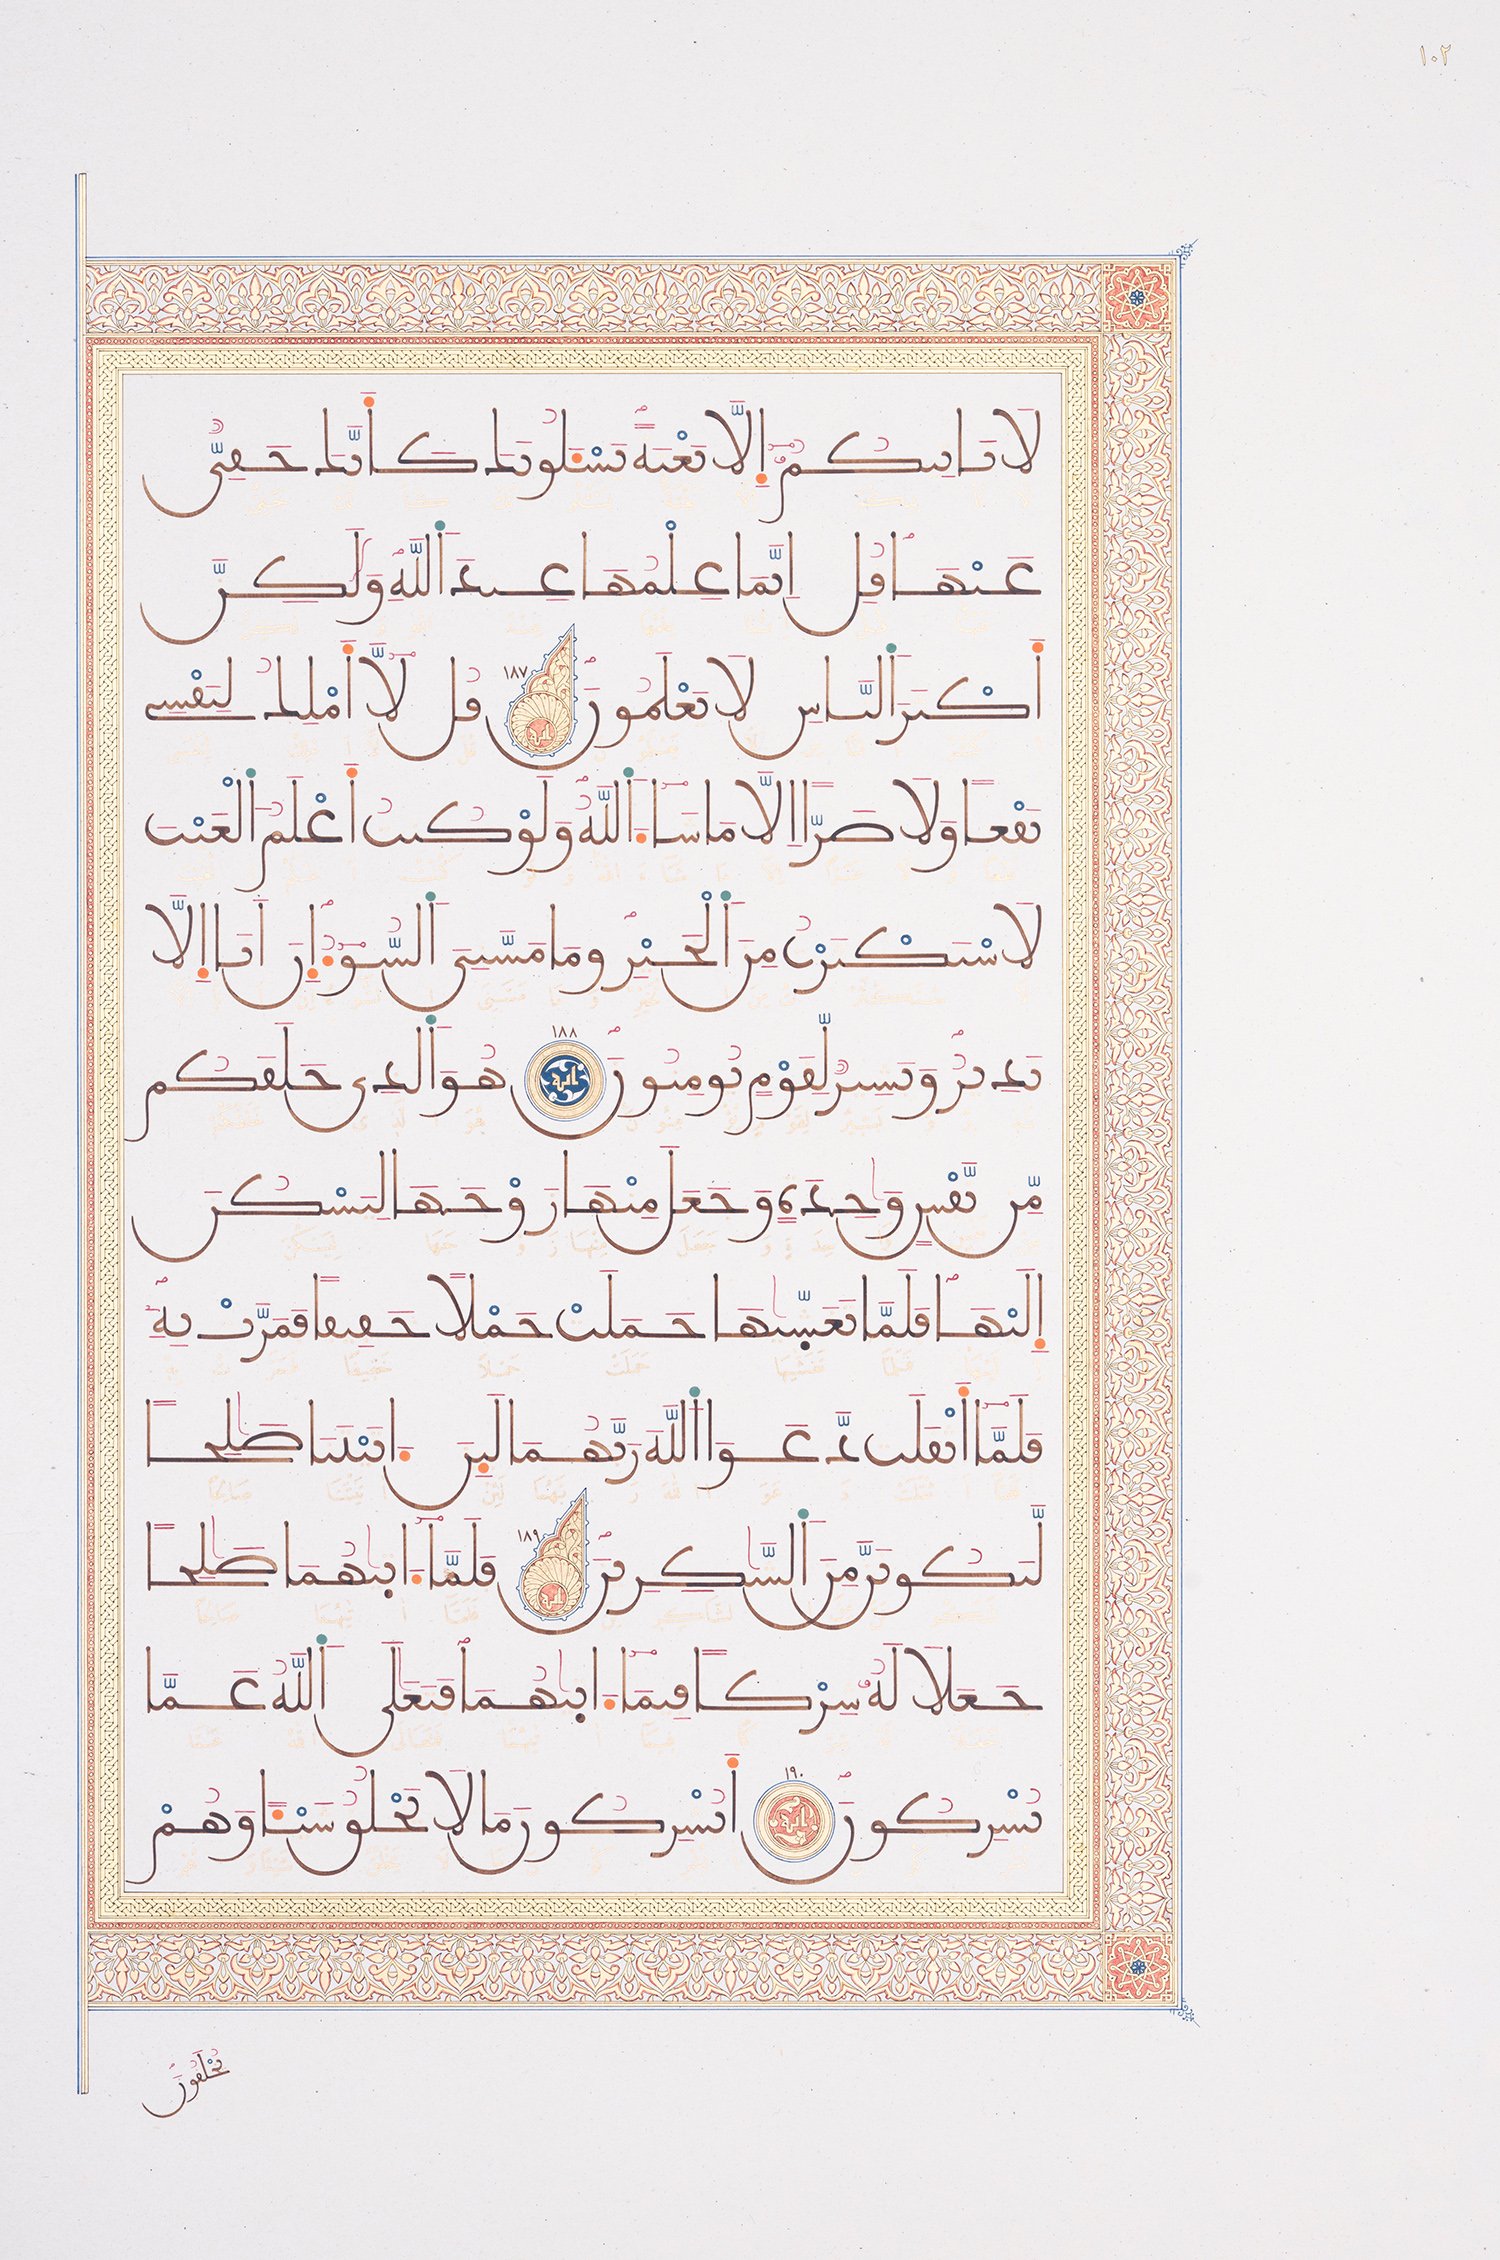 ١٠٢
لَا تَاتِيكُمُ إِلَّا بَغْتَةً يَسْـَٔلُونَكَ كَأَنَّكَ حَفِيٌّ
عَنْهَا قُلِ اِنَّمَا عِلْمُهَا عِندَ اَللَّهِ وَلَٰكِنَّ
أَكْثَرَ اَلنَّاسِ لَا يَعْلَمُونَ اية ١٨٧ قُل لَّا أَمْلِكُ لِنَفْسِي
نَفْعًا وَلَا ضَرًّا اِلَّا مَا شَاءَ اَللَّهُ وَلَوْ كُنتُ أَعْلَمُ اُلْغَيْبَ
لَاسْتَكْثَرْتُ مِنَ اَلْخَيْرِ وَمَا مَسَّنِيَ اَلسُّوءُ إِنَ اَنَا إِلَّا
نَذِيرٌ وَبَشِيرٌ لِّقَوْمٍ يُومِنُونَ اية ١٨٨ هُوَ اَلذِي خَلَقَكُم
مِّن نَّفْسٍ وَٰحِدَةٍ وَجَعَلَ مِنْهَا زَوْجَهَا لِيَسْكُنَ
إِلَيْهَا فَلَمَّا تَغَشَّىٰهَا حَمَلَتْ حَمْلًا خَفِيفًا فَمَرَّتْ بِهِ
فَلَمَّا أَثْقَلَت دَّعَوَا اَللَّهَ رَبَّهُمَا لَئِنَ اٰتَيْتَنَا صَٰلِحًا
لَّنَكُونَنَّ مِنَ اَلشَّٰكِرِينَ اية ١٨٩ فَلَمَّا ءَاتَىٰهُمَا صَٰلِحًا
جَعَلَا لَهُ شِرْكًا فِيمَا ءَاتَىٰهُمَا فَتَعَٰلَى اَللَّهُ عَمَّا
يُشْرِكُونَ اية ١٩٠ أَيُشْرِكُونَ مَا لَا يَخْلُقُ شَيْـًٔا وَهُمْ
يُخْلَقُونَ